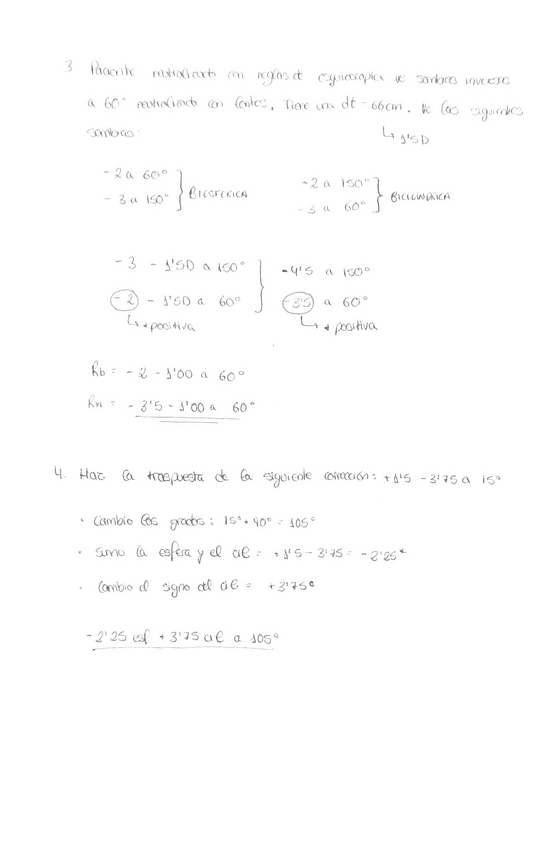 3 Paciente neutralizado con reglas de esquiascopia ve sombras inversas
a 60° neutralizado con lentes. Tiene una dt = 66cm. Ve las siguientes
sombras:
↳ 1'5D
-2 a 60°
-3 a 150°
} BIESFÉRICA
-2 a 150°
-3 a 60°
} BICILINDRICA
-3 - 1'5D a 150°
-2 - 1'5D a 60°
↳ + positiva
-4'5 a 150°
-3'5 a 60°
↳ + positiva
Rb = -2 -1'00 a 60°
Rn = -3'5 -1'00 a 60°
4. Haz la traspuesta de la siguiente corrección: +1'5 -3'75 a 15°
· Cambio los grados: 15° + 90° = 105°
· Sumo la esfera y el cil = +1'5 - 3'75 = -2'25
· Cambio el signo del cil = +3'75
-2'25 esf +3'75 cil a 105°